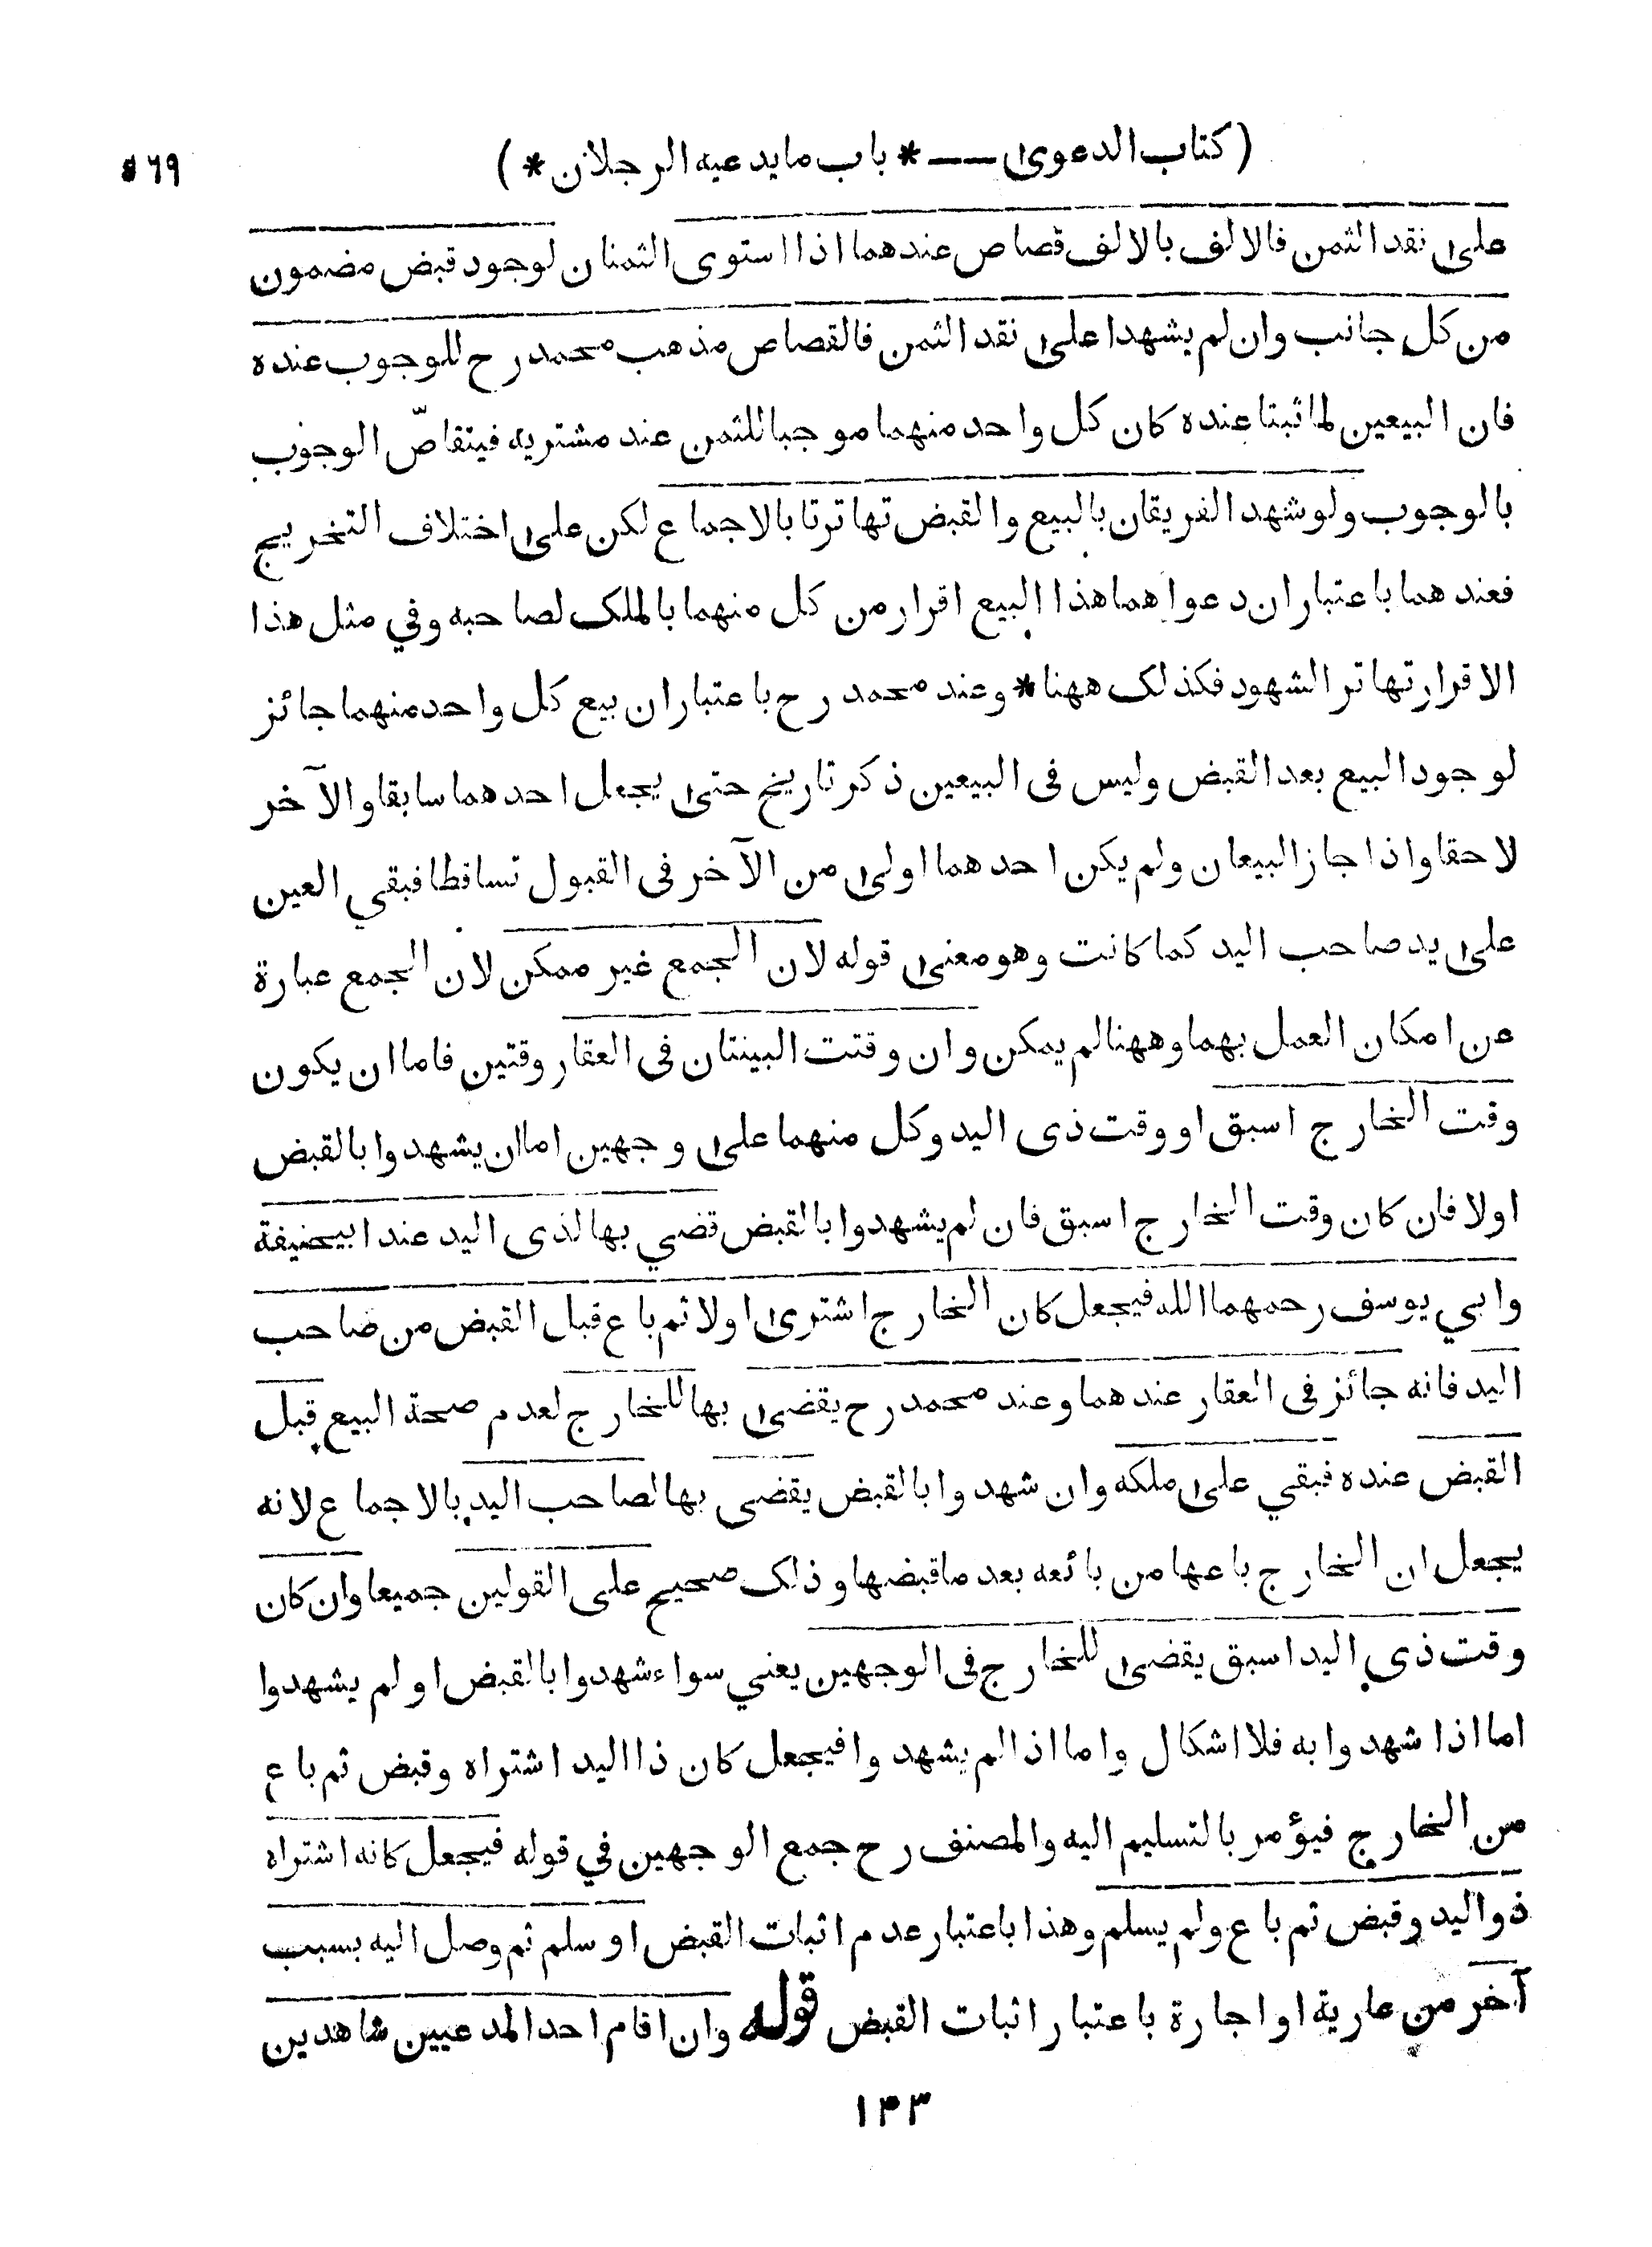 (كتاب الدعوىٰ —— * باب ما يدعيه الرجلان *)
٥٦٩
علىٰ نقد الثمن فالالف بالالف قصاص عندهما اذا استوى الثمنان لوجود قبض مضمون
من كل جانب وان لم يشهدا علىٰ نقد الثمن فالقصاص مذهب محمد رح للوجوب عنده
فان البيعين لما ثبتا عنده كان كل واحد منهما موجبا للثمن عند مشتريه فيتقاصّ الوجوب
بالوجوب ولو شهد الفريقان بالبيع والقبض تهاترتا بالاجماع لكن علىٰ اختلاف التخريج
فعندهما باعتبار ان دعواهما هذا البيع اقرار من كل منهما بالملك لصاحبه وفي مثل هذا
الاقرار تهاتر الشهود فكذلك ههنا * وعند محمد رح باعتبار ان بيع كل واحد منهما جائز
لوجود البيع بعد القبض وليس فى البيعين ذكر تاريخ حتىٰ يجعل احدهما سابقا والآخر
لاحقا واذا جاز البيعان ولم يكن احدهما اولىٰ من الآخر فى القبول تساقطا فبقي العين
علىٰ يد صاحب اليد كما كانت وهو معنىٰ قوله لان الجمع غير ممكن لان الجمع عبارة
عن امكان العمل بهما وههنا لم يمكن وان وقتت البينتان فى العقار وقتين فاما ان يكون
وقت الخارج اسبق او وقت ذى اليد وكل منهما علىٰ وجهين اما ان يشهدوا بالقبض
اولا فان كان وقت الخارج اسبق فان لم يشهدوا بالقبض قضي بها لذى اليد عند ابيحنيفة
وابي يوسف رحمهما الله فيجعل كان الخارج اشترىٰ اولا ثم باع قبل القبض من صاحب
اليد فانه جائز فى العقار عندهما وعند محمد رح يقضىٰ بها للخارج لعدم صحة البيع قبل
القبض عنده فبقي علىٰ ملكه وان شهدوا بالقبض يقضى بها لصاحب اليد بالاجماع لانه
يجعل ان الخارج باعها من بائعه بعد ما قبضها وذلك صحيح على القولين جميعا وان كان
وقت ذي اليد اسبق يقضىٰ للخارج فى الوجهين يعني سواء شهدوا بالقبض او لم يشهدوا
اما اذا شهدوا به فلا اشكال واما اذا لم يشهدوا فيجعل كان ذا اليد اشتراه وقبض ثم باع
من الخارج فيؤمر بالتسليم اليه والمصنف رح جمع الوجهين في قوله فيجعل كانه اشتراه
ذو اليد وقبض ثم باع ولم يسلم وهذا باعتبار عدم اثبات القبض او سلم ثم وصل اليه بسبب
آخر من عارية او اجارة باعتبار اثبات القبض قوله وان اقام احد المدعيين شاهدين
١٤٣